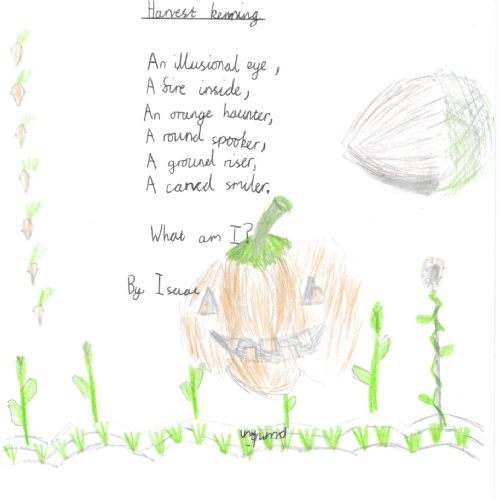 Harvest kenning
An illusional eye,
A fire inside,
An orange haunter,
A round spooker,
A ground riser,
A carved smiler.
What am I?
By Isaac